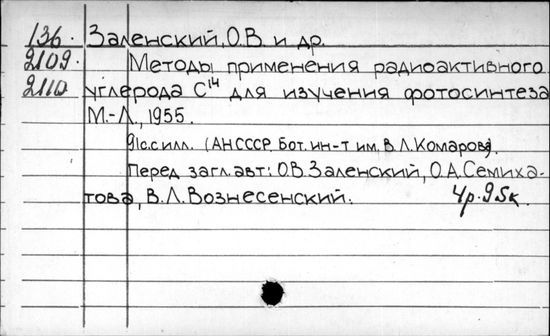 136. Заленский, О.В. и др.
2109. Методы применения радиоактивного
2110 углерода С¹⁴ для изучения фотосинтеза
М.-Л., 1955.
91с.с илл. (АН СССР. Бот. ин-т им, В.Л.Комарова).
Перед загл. авт: О.В. Заленский, О.А. Семиха-
това, В.Л. Вознесенский. 4р.95к.